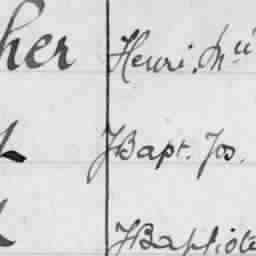 her Henri, Mii
JBapt. Jos.
JBaptiste